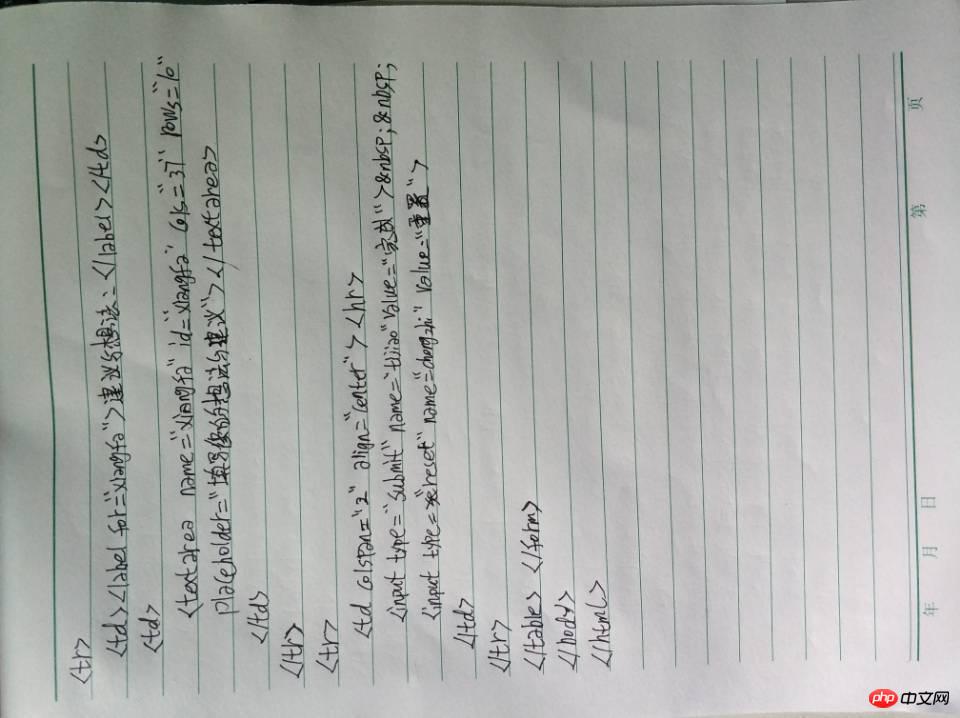 <tr>
<td><label for="xiangfa">建议与想法:</label></td>
<td>
<textarea name="xiangfa" id="xiangfa" cols="37" rows="10"
placeholder="填写你的想法与建议"></textarea>
</td>
</tr>
<tr>
<td colspan="2" align="center"><hr>
<input type="submit" name="tijiao" value="完成">&nbsp;&nbsp;
<input type="reset" name="chongzhi" value="重置">
</td>
</tr>
</table></form>
</body>
</html>
年 月 日 第 页
php 中文网